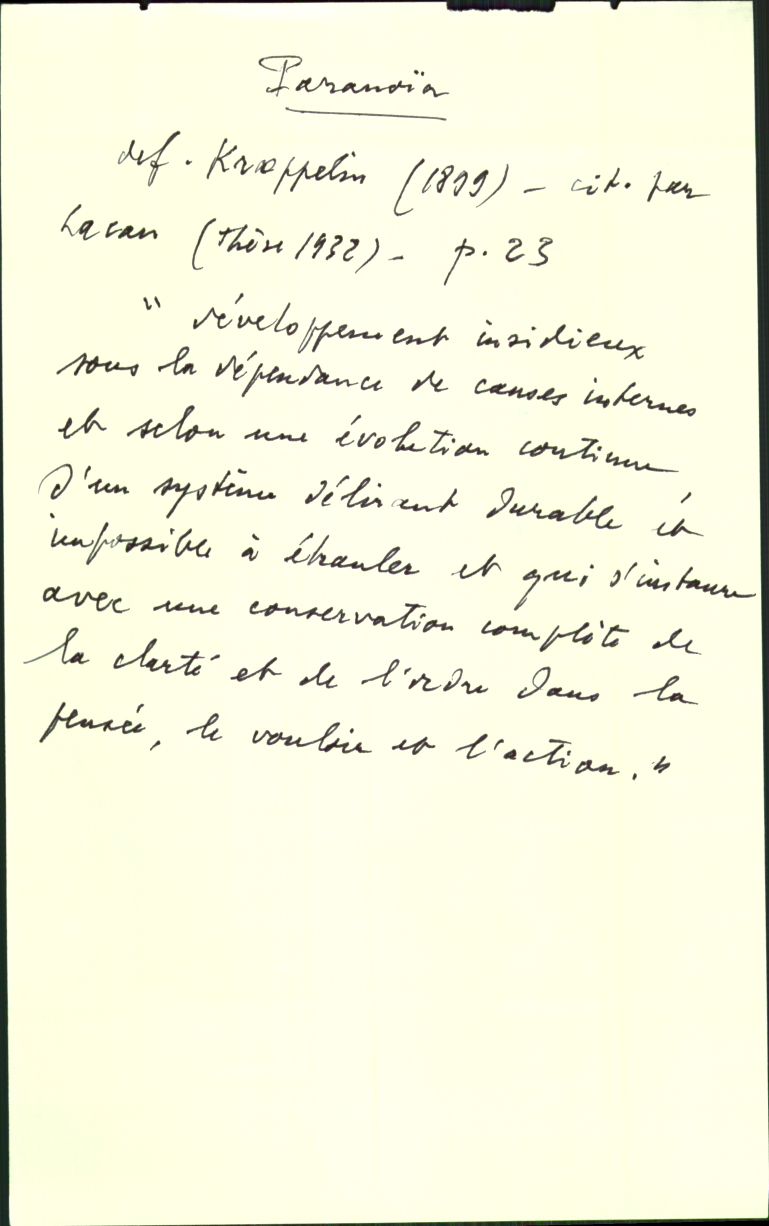 Paranoïa
def. Kræppelin (1899) - cit. par
Lacan (Thèse 1932) - p. 23
" développement insidieux
sous la dépendance de causes internes
et selon une évolution continue
d'un système délirant durable et
impossible à ébranler et qui s'instaure
avec une conservation complète de
la clarté et de l'ordre dans la
pensée, le vouloir et l'action."